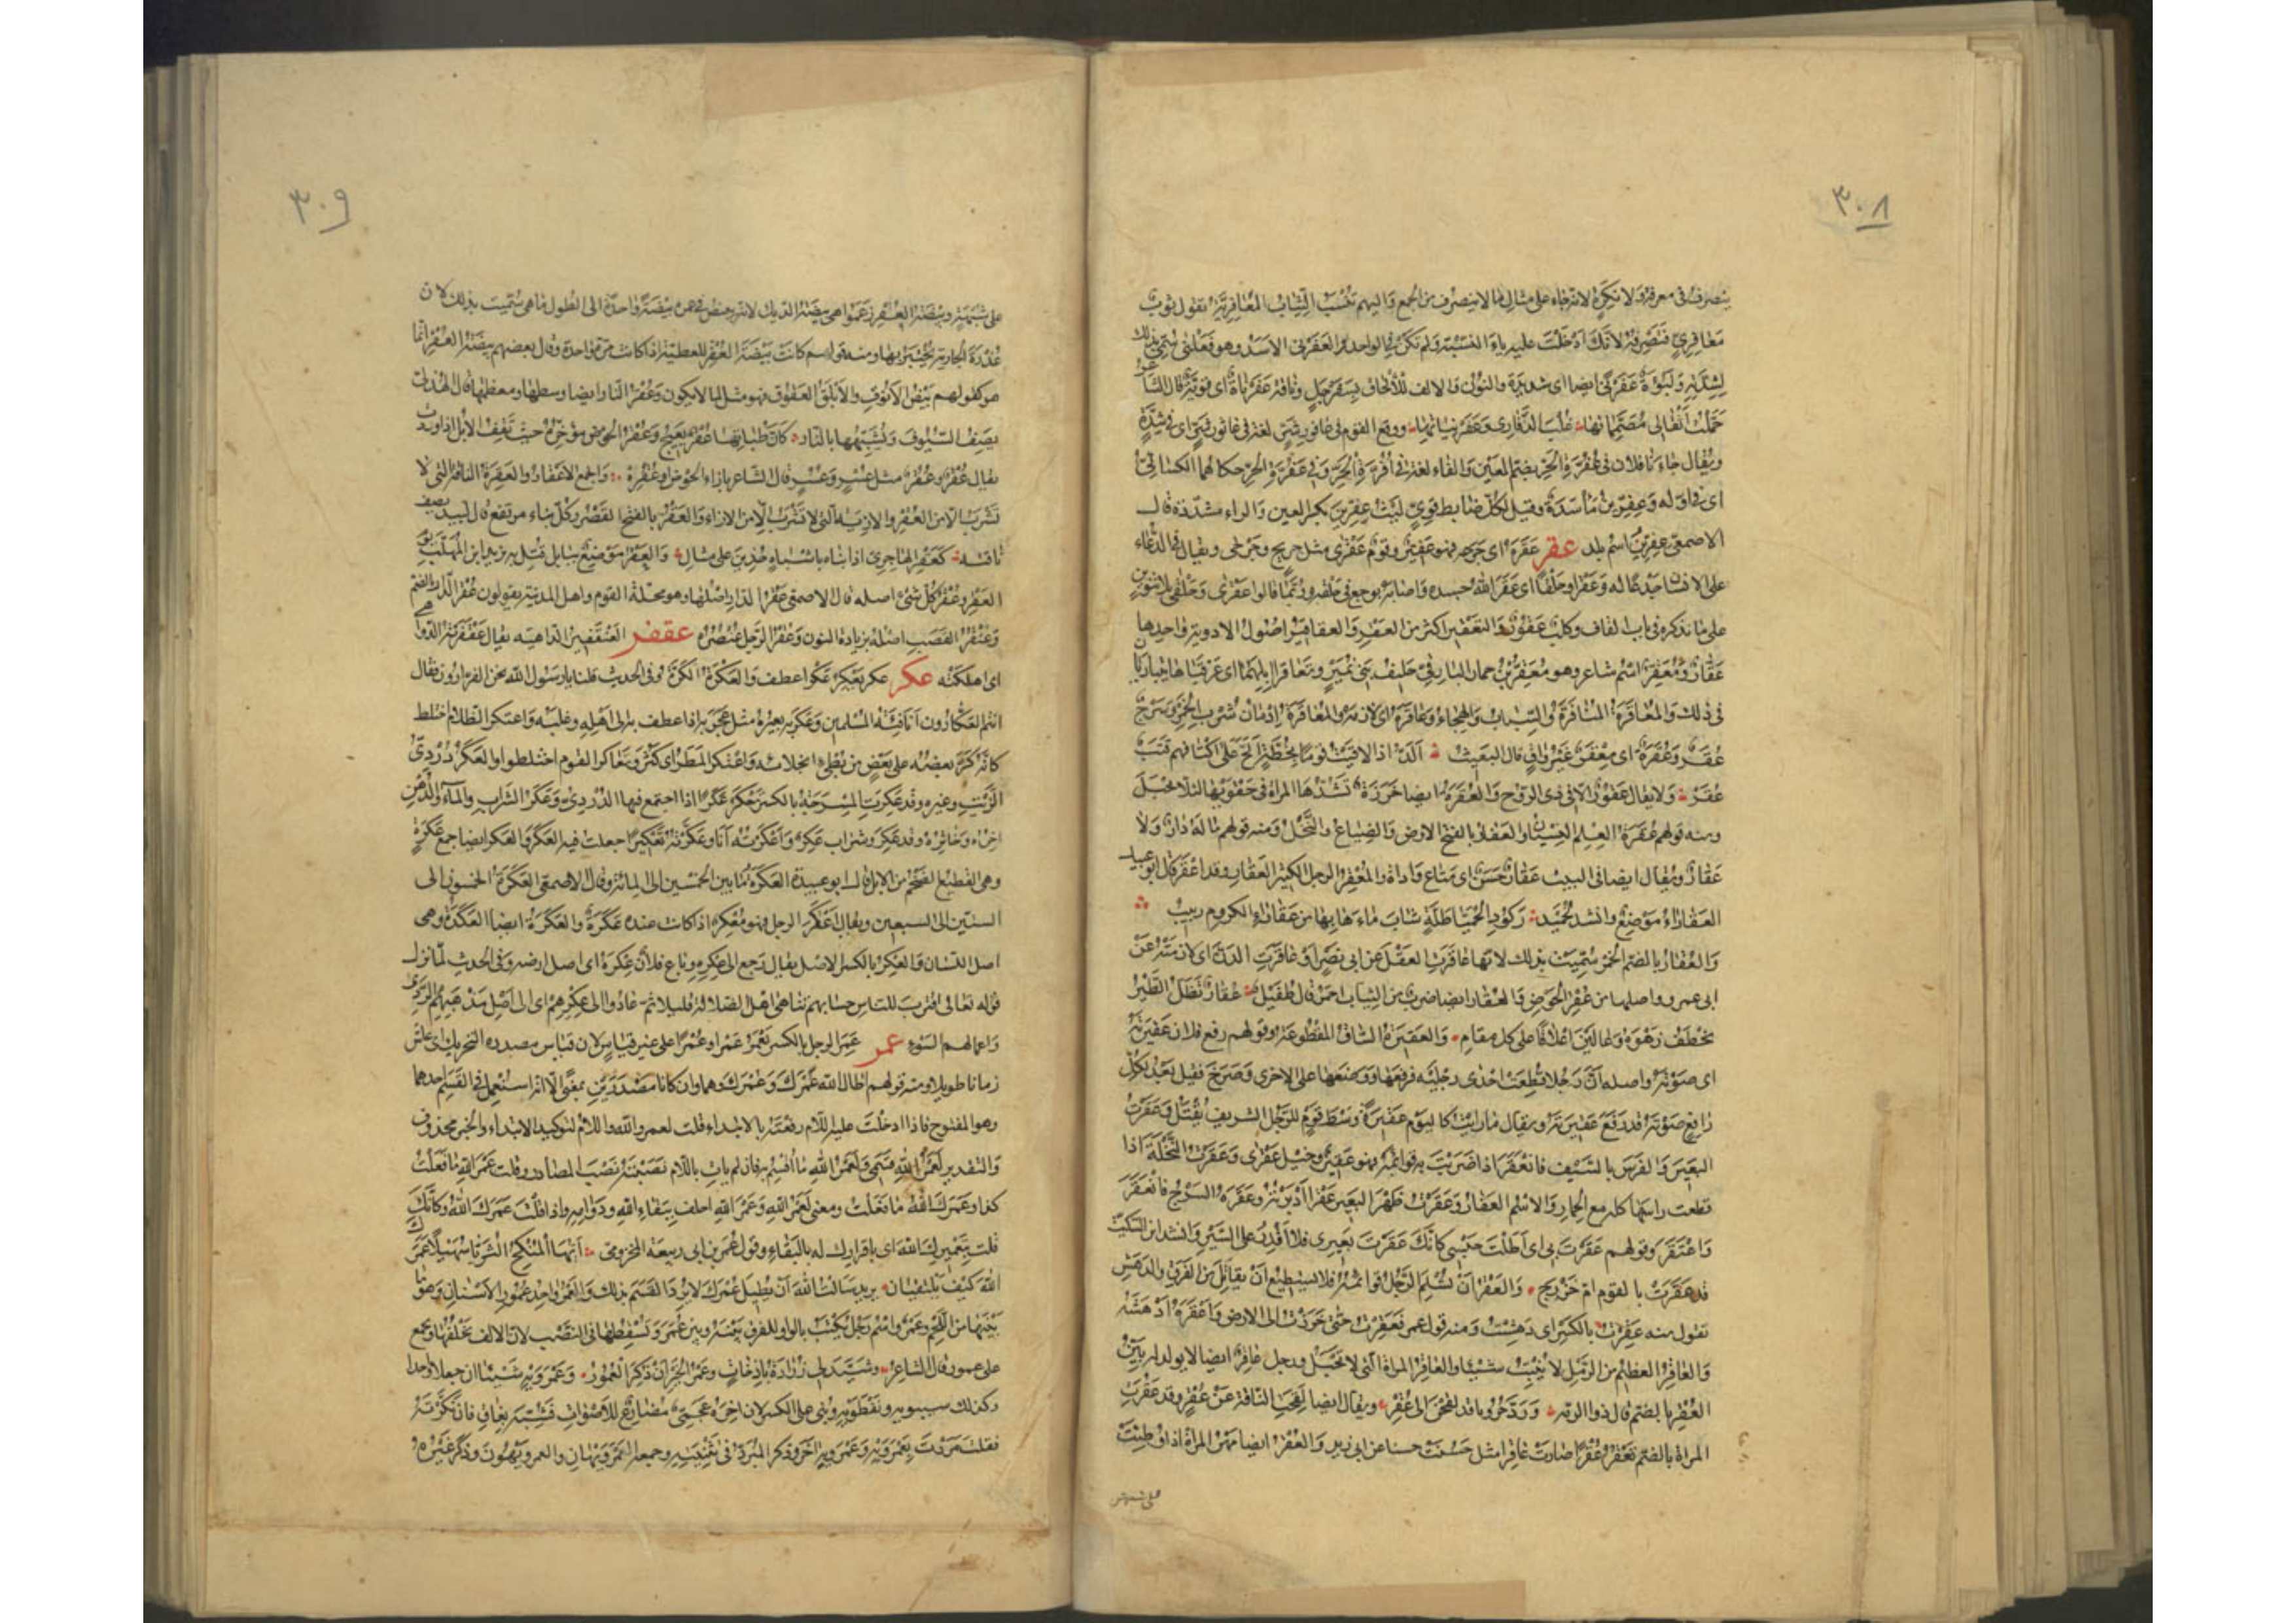 ٣٠٨
ينصرف في معرفة ولا نكرة لانه جاء على مثال ما لا ينصرف من الجمع واليهم تنسب الثياب المعافرية تقول ثوب
معافري فتصرفه لانك ادخلت عليه ياء النسبة ولم تكن في الواحد والعفرنى الاسد وهو فعلنى سمي بذلك
لشدته ولبوة عفرنى ايضا اى شديدة والنون والالف للالحاق بسفرجل وناقة عفرناة اى قوية قال الشاعر
حملت اثقالى مصمماتها غلب الذفارى وعفرنياتها ووقع القوم في عافور شر لغة في عاثور شر اى في شدة
ويقال جاءنا فلان في عفرة الحر بضم العين والفاء لغة في افرة الحر وفى عفرة الحر حكاهما الكسائي
اى فى اوله وعفرين مأسدة وقيل لكل ضابط قوي ليث عفرين بكسر العين والراء مشددة قال
الاصمعي عفرين اسم بلد عقر عقره اى جرحه فهو عقير وقوم عقرى مثل جريح وجرحى ويقال في الدعاء
على الانسان جدعا له وعقرا وحلقا اى عقر الله جسده واصابه بوجع في حلقه وربما قالوا عقرى وحلقى بلا تنوين
على ما نذكره في باب القاف وكلب عقور والتعقير اكثر من العقر والعقاقير اصول الادوية واحدها
عقار ومعقر اسم شاعر وهو معقر بن حمار البارقي حليف بني نمير وتعاقرا ابلهما اى عرقباها يتباريان
في ذلك والمعاقرة المنافرة والسباب والهجاء وعاقره اى لازمه والمعاقرة ادمان شرب الخمر وسرج
عقر وعقرة اى معقر غير واق قال البعيث الد اذا لاقيت قوما بخطة الح على اكتافهم قتب
عقر ولا يقال عقور الا في ذى الروح والعقرة ايضا خرزة تشدها المراة في حقويها لئلا تحبل
ومنه قولهم عقرة العلم النسيان والعقار بالفتح الارض والضياع والنخل ومنه قولهم ما له دار ولا
عقار ويقال ايضا في البيت عقار حسن اى متاع واداة والمعقر الرجل الكثير العقار وقد اعقر قال ابو عبيد
العقاراء موضع وانشد لحميد ركود الحميا طلة شاب ماءها بها من عقاراء الكروم ربيب
والعقار بالضم الخمر سميت بذلك لانها عاقرت العقل عن ابى نصر او عاقرت الدن اى لازمته عن
ابى عمرو واصلها من عقر الحوض والعقار ايضا ضرب من الثياب احمر قال طفيل عقار تظل الطير
تخطف زهوه وعالين اعلاقا على كل مفام والعقيرة الساق المقطوعة وقولهم رفع فلان عقيرته
اى صوته واصله ان رجلا قطعت احدى رجليه فرفعها ووضعها على الاخرى وصرخ فقيل بعد لكل
رافع صوته قد رفع عقيرته ويقال ما رايت كاليوم عقيرة وسط قوم للرجل الشريف يقتل وعقرت
البعير والفرس بالسيف فانعقر اذا ضربت به قوائمه فهو عقير وخيل عقرى وعقرت النخلة اذا
قطعت راسها كله مع الجمار والاسم العقار وعقرت ظهر البعير عقرا ادبرته وعقره السرج فانعقر
واعتقر وقولهم عقرت بى اى اطلت حبسى كانك عقرت بعيرى فلا اقدر على السير وانشد ابن السكيت
قد عقرت بالقوم ام خزرج والعقر ان تسلم الرجل قوائمه فلا يستطيع ان يقاتل من الفرق والدهش
تقول منه عقرت بالكسر اى دهشت ومنه قول عمر فعقرت حتى خررت الى الارض واعقره ادهشه
والعاقر العظيم من الرمل لا ينبت شيئا والعاقر المراة التى لا تحبل ورجل عاقر ايضا لا يولد له بين
العقر بالضم قال ذو الرمة ورد حروبا قد لقحن الى عقر ويقال ايضا لقحت الناقة عن عقر وقد عقرت
المراة بالضم تعقر عقرا صارت عاقرا مثل حسنت حسنا عن ابى زيد والعقر ايضا مهر المراة اذا وطئت
على شبهة
٣٠٩
على شبهة وبيضة العقر زعموا هى بيضة الديك لانه يبيض في عمره بيضة واحدة الى الطول ما هى سميت بذلك لان
عذرة الجارية تختبر بها ومنه قولهم كانت بيضة العقر للعطية اذا كانت مرة واحدة وقال بعضهم بيضة العقر انما
هو كقولهم بيض الانوق والابلق العقوق فهو مثل لما لا يكون وعقر النار ايضا وسطها ومعظمها قال الهذلى
يصف السيوف ويشبهها بالنار كان ظباتها عقر بعيج وعقر الحوض مؤخره حيث تقف الابل اذا وردت
يقال عقر وعقر مثل عسر وعسر قال الشاعر بازاء الحوض او عقره والجمع الاعقار والعقرة الناقة التى لا
تشرب الا من العقر والازية التى لا تشرب الا من الازاء والعقر بالفتح القصر وكل بناء مرتفع قال لبيد يصف
ناقته كعقر الهاجرى اذا ابتناه باشباه حذين على مثال والعقر موضع ببابل قتل به يزيد ابن المهلب يوم
العقر وعقر كل شئ اصله قال الاصمعى عقر الدار اصلها وهو محلة القوم واهل المدينة يقولون عقر الدار بالضم
وعنقر القصب اصله بزيادة النون وعقر الرجل عنصره عقفر العنقفير الداهية يقال عقفرته الدواهى
اى اهلكته عكر عكر يعكر عكرا عطف والعكرة الكرة وفى الحديث قلنا يا رسول الله نحن الفرارون فقال
انتم العكارون انا فئة المسلمين وعكر به بعيره مثل عجر به اذا عطف به الى اهله وغلبه واعتكر الظلام اختلط
كانه كر بعضه على بعض من بطء انجلائه واعتكر المطر اى كثر وتعاكر القوم اختلطوا والعكر دردى
الزيت وغيره وقد عكرت المسرجة بالكسر تعكر عكرا اذا اجتمع فيها الدردى وعكر الشراب والماء والدهن
اخره وخاثره وقد عكر وشراب عكر واعكرته انا وعكرته تعكيرا جعلت فيه العكر والعكر ايضا جمع عكرة
وهى القطيع الضخم من الابل قال ابو عبيدة العكرة ما بين الخمسين الى المائة وقال الاصمعى العكرة الخمسون الى
الستين الى السبعين ويقال اعكر الرجل فهو معكر اذا كانت عنده عكرة والعكرة ايضا العكدة وهى
اصل اللسان والعكر بالكسر الاصل يقال رجع الى عكره وباع فلان عكرة اى اصل ارضه وفى الحديث لما نزل
قوله تعالى اقترب للناس حسابهم تناهى اهل الضلالة قليلا ثم عادوا الى عكرهم اى الى اصل مذهبهم الردى
واعمالهم السوء عمر عمر الرجل بالكسر يعمر عمرا وعمرا على غير قياس لان قياس مصدره التحريك اى عاش
زمانا طويلا ومنه قولهم اطال الله عمرك وعمرك وهما وان كانا مصدرين بمعنى الا انه استعمل في القسم احدهما
وهو المفتوح فاذا ادخلت عليه اللام رفعته بالابتداء قلت لعمر والله واللام لتوكيد الابتداء والخبر محذوف
والتقدير لعمر الله قسمى ولعمر الله ما اقسم به فان لم يات باللام نصبته نصب المصادر وقلت عمر الله ما فعلت
كذا وعمرك الله ما فعلت ومعنى لعمر الله وعمر الله احلف ببقاء الله ودوامه واذا قلت عمرك الله وكانك
قلت بتعميرك الله اى باقرارك له بالبقاء وقول عمر بن ابى ربيعة المخزومى ايها المنكح الثريا سهيلا عمرك
الله كيف يلتقيان يريد سالت الله ان يطيل عمرك لانه لم يرد القسم بذلك والعمر واحد عمور الاسنان وهو ما
بينها من اللحم وعمرو اسم رجل يكتب بالواو للفرق بينه وبين عمر وتسقطها في النصب لان الالف تخلفها ويجمع
على عمور قال الشاعر وشيد لى زرارة باذخات وعمرو الخير ان ذكر العمور وعمرويه شيئان جعلا واحدا
وكذلك سيبويه ونفطويه وبنى على الكسر لان اخره عجمى مضارع للاصوات فشبه بغاق فان نكرته
فقلت مررت بعمرويه وعمرويه اخر وذكر المبرد في تثنيته وجمعه العمرويهان والعمرويهون وذكر غيره